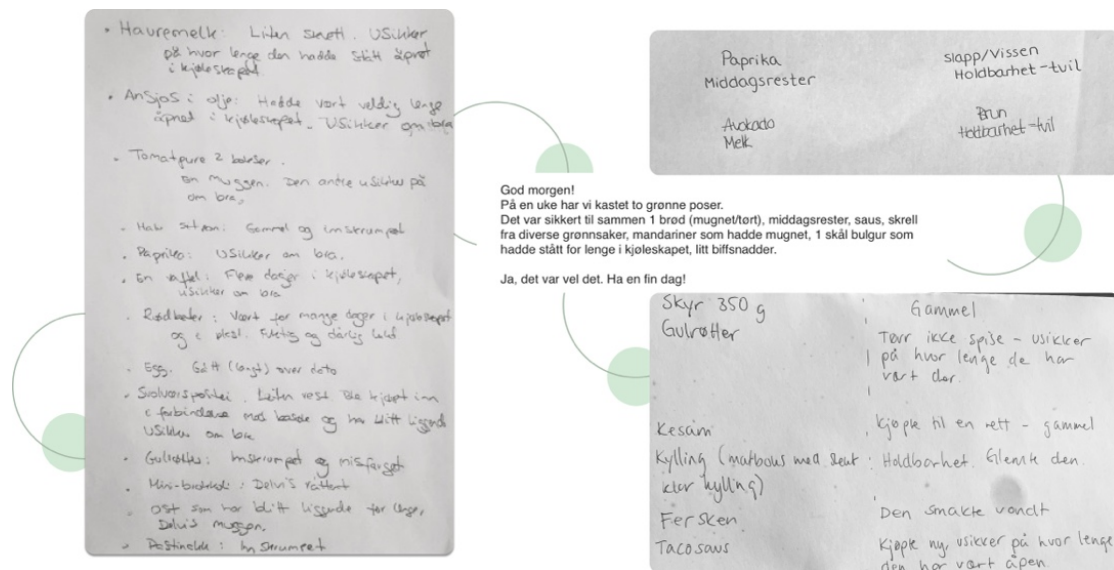 • Havremelk: Liten skvett. Usikker
på hvor lenge den hadde stått åpnet
i kjøleskapet.
• Ansjos i olje: Hadde vært veldig lenge
åpnet i kjøleskapet. Usikker om bra
• Tomatpure 2 bokser.
En muggen. Den andre usikker på
om bra.
• Halv sitron: Gammel og innskrumpet
• Paprika: Usikker om bra.
• En vaffel: Flere dager i kjøleskapet,
usikker om bra
• Rødbeter: Vært for mange dager i kjøleskapet
og i plast. Fuktig og dårlig lukt
• Egg. Gått (langt) over dato
• Liten rest. Ble kjøpt inn
i forbindelse med og har blitt liggende
Usikker om bra
• Gulrøtter: Innskrumpet og misfarget
• Mini-brokkoli: Delvis råttent
• Ost som har blitt liggende for lenge,
Delvis muggen.
• Pastinakk: Innskrumpet
Paprika slapp/Vissen
Middagsrester Holdbarhet-tvil
Avokado Brun
Melk Holdbarhet-tvil
God morgen!
På en uke har vi kastet to grønne poser.
Det var sikkert til sammen 1 brød (mugnet/tørt), middagsrester, saus, skrell
fra diverse grønnsaker, mandariner som hadde mugnet, 1 skål bulgur som
hadde stått for lenge i kjøleskapet, litt biffsnadder.
Ja, det var vel det. Ha en fin dag!
Skyr 350 g Gammel
Gulrøtter Tørr ikke spise - usikker
på hvor lenge de har
vært der.
Kesam Kjøpte til en rett - gammel
Kylling (matboks med rent Holdbarhet. Glemte den.
klar kylling)
Fersken Den smakte vondt
Tacosaus Kjøpte ny, usikker på hvor lenge
den har vært åpen